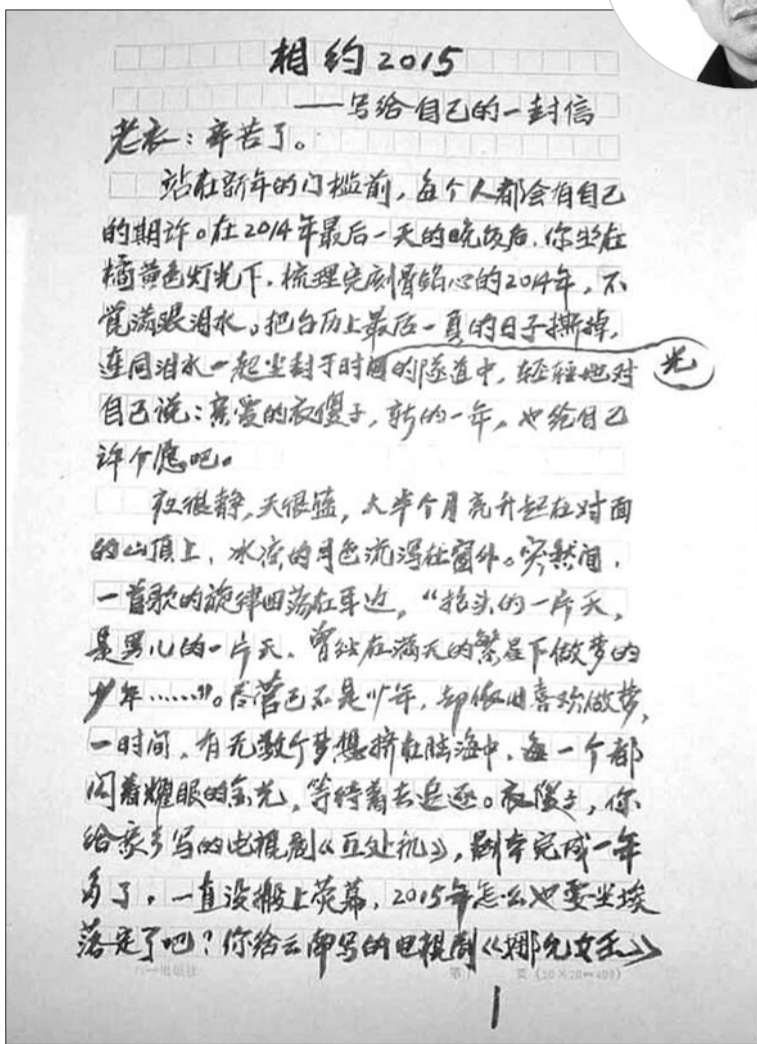 相约2015
——写给自己的一封信
老衣：辛苦了。
站在新年的门槛前，每个人都会有自己
的期许。在2014年最后一天的晚饭后，你坐在
橘黄色灯光下，梳理完刻骨铭心的2014年，不
觉满眼泪水。把台历上最后一页的日子撕掉，
连同泪水一起尘封于时间的隧道中，轻轻地对
光
自己说：亲爱的衣傻子，新的一年，也给自己
许个愿吧。
夜很静，天很蓝，大半个月亮升起在对面
的山顶上，冰凉的月色流泻在窗外。突然间，
一首歌的旋律回荡在耳边，“抬头的一片天，
是男儿的一片天，曾经在满天的繁星下做梦的
少年……”。尽管已不是少年，却依旧喜欢做梦，
一时间，有无数个梦想挤在脑海中，每一个都
闪着耀眼的金光，等待着去追逐。衣傻子，你
给家乡写的电视剧《丘处机》，剧本完成一年
多了，一直没搬上荧幕，2015年怎么也要尘埃
落定了吧？你给云南写的电视剧《娜允女王》
第 页 (20×20=400)
1